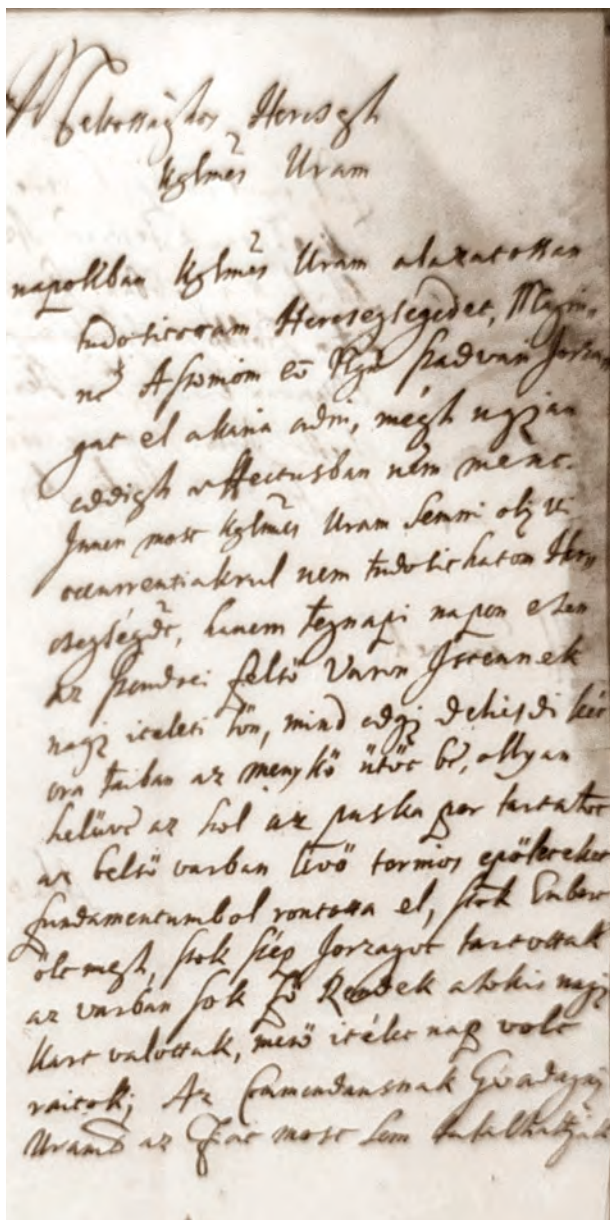 Meltossághos Herczegh
Kglmes Uram
napokban Kglmes Uram alazatossan
tudositottam Herczegségedet,
ne Aszoniom eö Ngha Jorza
gat el akarna adni, mégh ugjan
eddigh effectusban nem ment.
Innen most Kglmes Uram semmi olj uj
occurrentiakrul nem tudosithatom Her,
czegségdt, hanem tegnapi napon esen
az Szendrei felsö Varon Istennek
nagj iteleti lön, mind edgj delesdi két
ora taiban az menykö ütöt be, ollyan
helüve az hol az puska por tartatot
az belsö varban levö termios epöleteket
fundamentumbol rontotta el, sok Embert
ölt megh, sok szép Jorzagot tartottak
az varban sok fö Rendek a kokis nagj
kart valottak, merö itélet nap volt
raitok; Az Commendansnak Gvadagnj
Uramd az most sem talalhattjak